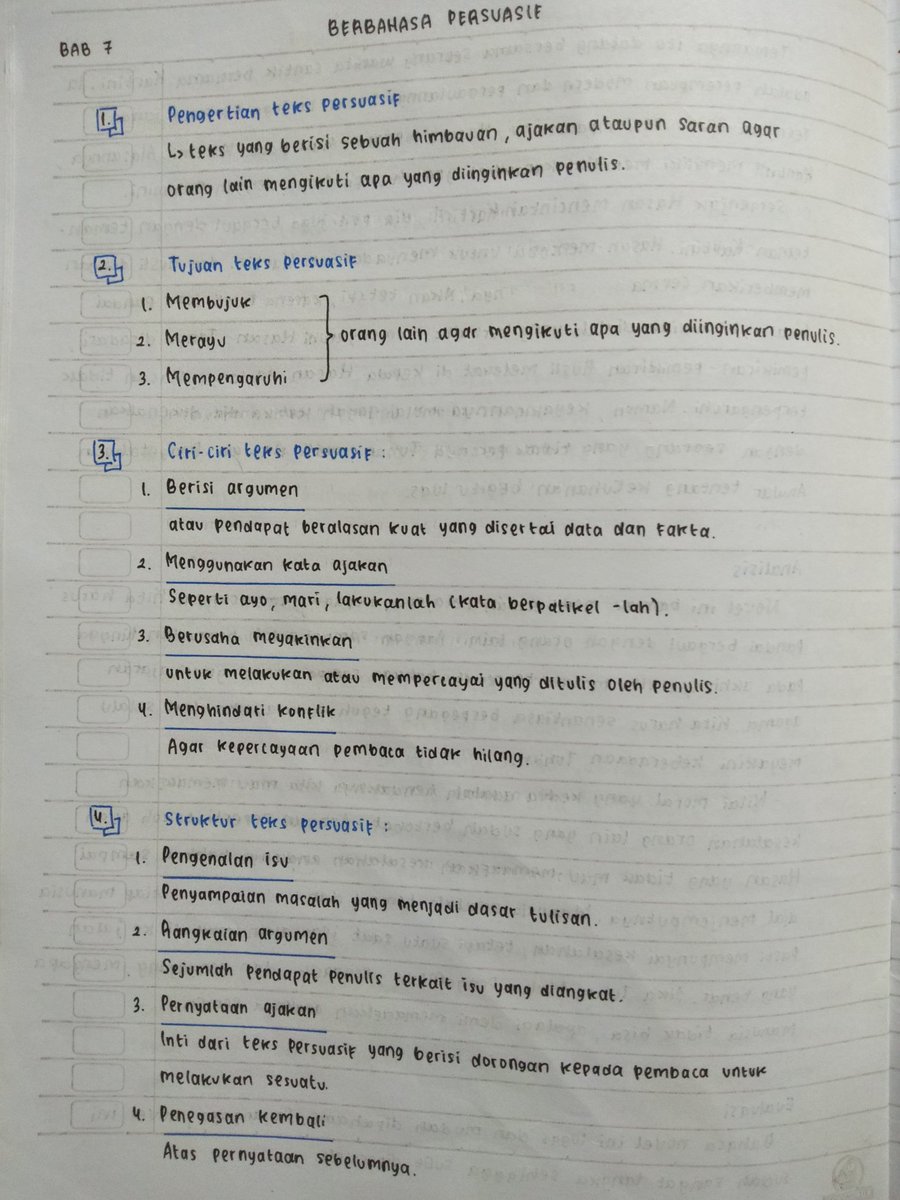 BERBAHASA PERSUASIF
BAB 7
1. Pengertian teks persuasif
↳ teks yang berisi sebuah himbauan, ajakan ataupun saran agar
orang lain mengikuti apa yang diinginkan penulis.
2. Tujuan teks persuasif
1. Membujuk
2. Merayu
3. Mempengaruhi
orang lain agar mengikuti apa yang diinginkan penulis.
3. Ciri-ciri teks persuasif :
1. Berisi argumen
atau pendapat beralasan kuat yang disertai data dan fakta.
2. Menggunakan kata ajakan
Seperti ayo, mari, lakukanlah (kata berpatikel -lah).
3. Berusaha meyakinkan
untuk melakukan atau mempercayai yang ditulis oleh penulis.
4. Menghindari konflik
Agar kepercayaan pembaca tidak hilang.
4. Struktur teks persuasif :
1. Pengenalan isu
Penyampaian masalah yang menjadi dasar tulisan.
2. Rangkaian argumen
Sejumlah pendapat penulis terkait isu yang diangkat.
3. Pernyataan ajakan
Inti dari teks persuasif yang berisi dorongan kepada pembaca untuk
melakukan sesuatu.
4. Penegasan kembali
Atas pernyataan sebelumnya.